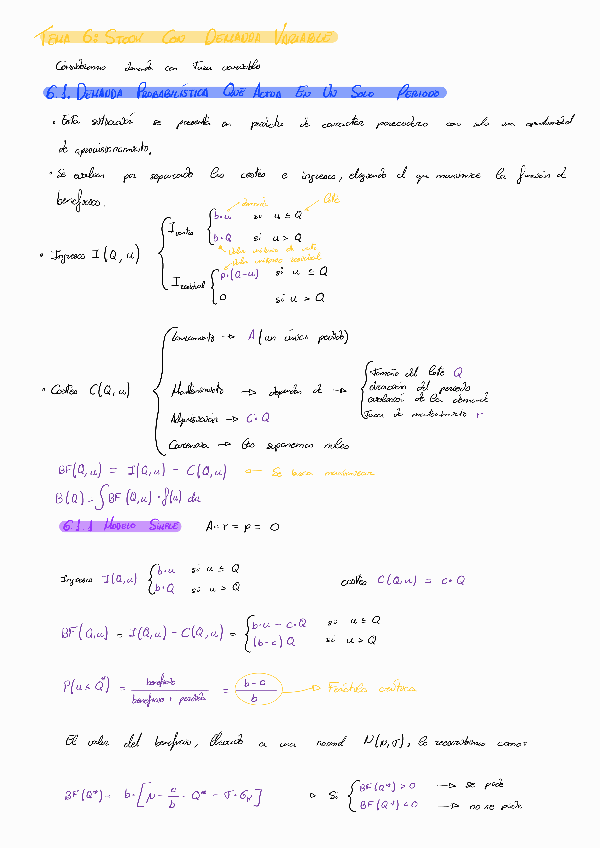 TEMA 6: STOCK CON DEMANDA VARIABLE
Consideramos demanda con tasa variable
6.1. DEMANDA PROBABILÍSTICA QUE ACTUA EN UN SOLO PERIODO
• Esta situación se presenta en productos de carácter perecedero con solo una oportunidad
de aprovisionamiento.
• Se evalúan por separado los costes e ingresos, eligiendo el que maximice la función de
beneficios.
demanda
Lote
• Ingresos I(Q, u)
I ventas
b·u si u ≤ Q
b·Q si u > Q
Valor unitario de venta
Valor unitario residual
I residual
p·(Q-u) si u ≤ Q
0 si u > Q
• Costes C(Q, u)
Lanzamiento → A (un único pedido)
Mantenimiento → depende de →
Tamaño del lote Q
duración del periodo
evolución de la demanda
Tasa de mantenimiento r
Adquisición → C·Q
Carencia → Los suponemos nulos
BF(Q, u) = I(Q, u) - C(Q, u) ← Se busca maximizar
B(Q) = ∫ BF(Q, u) · f(u) du
6.1.1 MODELO SIMPLE A = r = p = 0
Ingresos I(Q,u)
b·u si u ≤ Q
b·Q si u > Q
costes C(Q,u) = c·Q
BF(Q,u) = I(Q,u) - C(Q,u) =
b·u - c·Q si u ≤ Q
(b-c)Q si u > Q
P(u ≤ Q*) = beneficio / beneficio + pérdida = b-c / b → Fráctil crítico
El valor del beneficio, llevado a una normal N(μ,σ), lo reescribimos como:
BF(Q*) = b·[μ - c/b · Q* - σ·G_N]
→ Si
BF(Q*) > 0 → se pide
BF(Q*) < 0 → no se pide